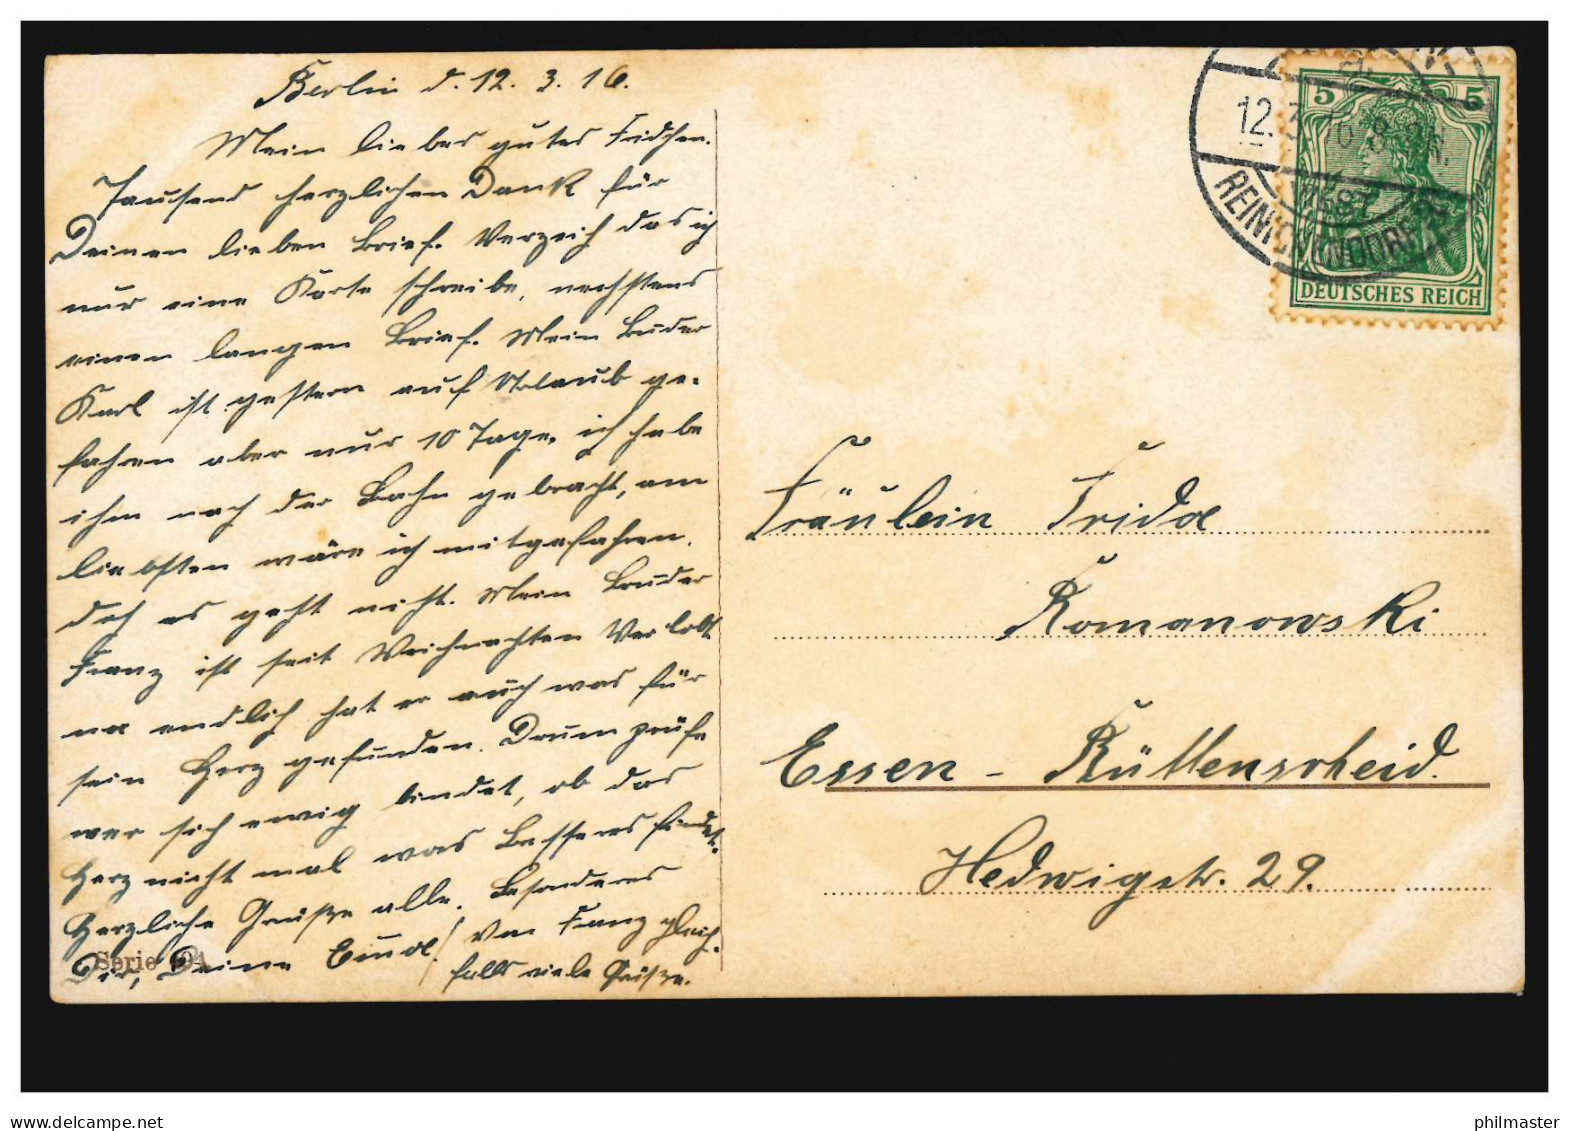 Berlin d. 12. 3. 16.
Mein liebes gutes Fridchen.
Tausend herzlichen Dank für
Deinen lieben Brief. Verzeih das ich
nur eine Karte schreibe, nechstens
einen langen Brief. Mein Bruder
Karl ist gestern auf Urlaub ge-
fahren aber nur 10 Tage, ich habe
ihm nach der Bahn gebracht, am
liebsten wäre ich mitgefahren.
doch es geht nicht. Mein Bruder
Franz ist seit Weihnachten Verlobt
na endlich hat er auch was für
sein Herz gefunden. Drum prüfe
wer sich ewig bindet, ob das
Herz nicht mal was Besseres findet.
Herzliche Grüße alle. Besonderes
Dir, Deine
von Franz gleich-
falls viele Grüße.
Serie
12. 3. 16. 8-9 N.
REINICKENDORF
5 5
DEUTSCHES REICH
Fräulein Frida
Romanowski
Essen - Rüttenscheid.
Hedwigstr. 29.
www.delcampe.net
philmaster